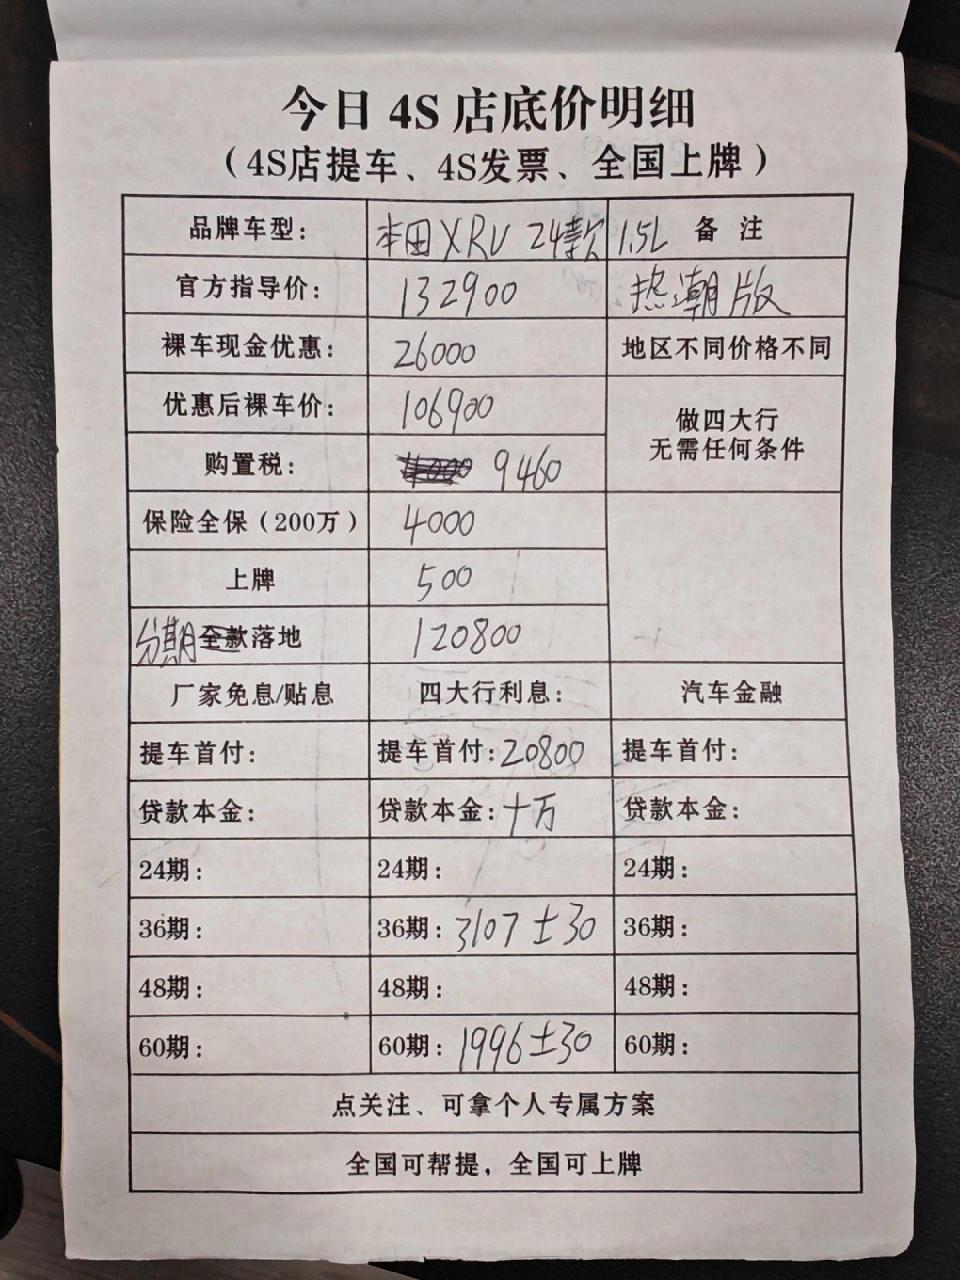 今日 4S 店底价明细
（4S店提车、4S发票、全国上牌）
品牌车型： 本田 XRV 24款 1.5L 备 注
官方指导价： 132900 热潮版
裸车现金优惠： 26000 地区不同价格不同
优惠后裸车价： 106900 做四大行
无需任何条件
购置税： 9460
保险全保（200万） 4000
上牌 500
分期全款落地 120800
厂家免息/贴息 四大行利息： 汽车金融
提车首付： 提车首付：20800 提车首付：
贷款本金： 贷款本金：十万 贷款本金：
24期： 24期： 24期：
36期： 36期：3107±30 36期：
48期： 48期： 48期：
60期： 60期：1996±30 60期：
点关注、可拿个人专属方案
全国可帮提，全国可上牌